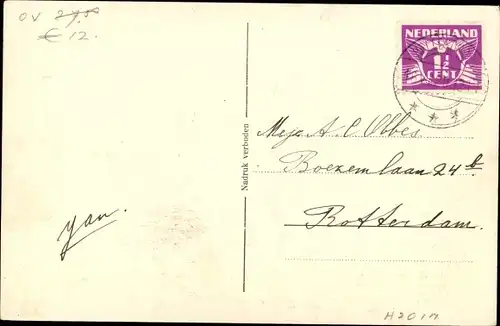 OV 27,50
€ 12.
NEDERLAND
1½
CENT
Nadruk verboden
Mej. A. C. Obbes
Boezemlaan 24 b
Rotterdam.
Jan.
H2017